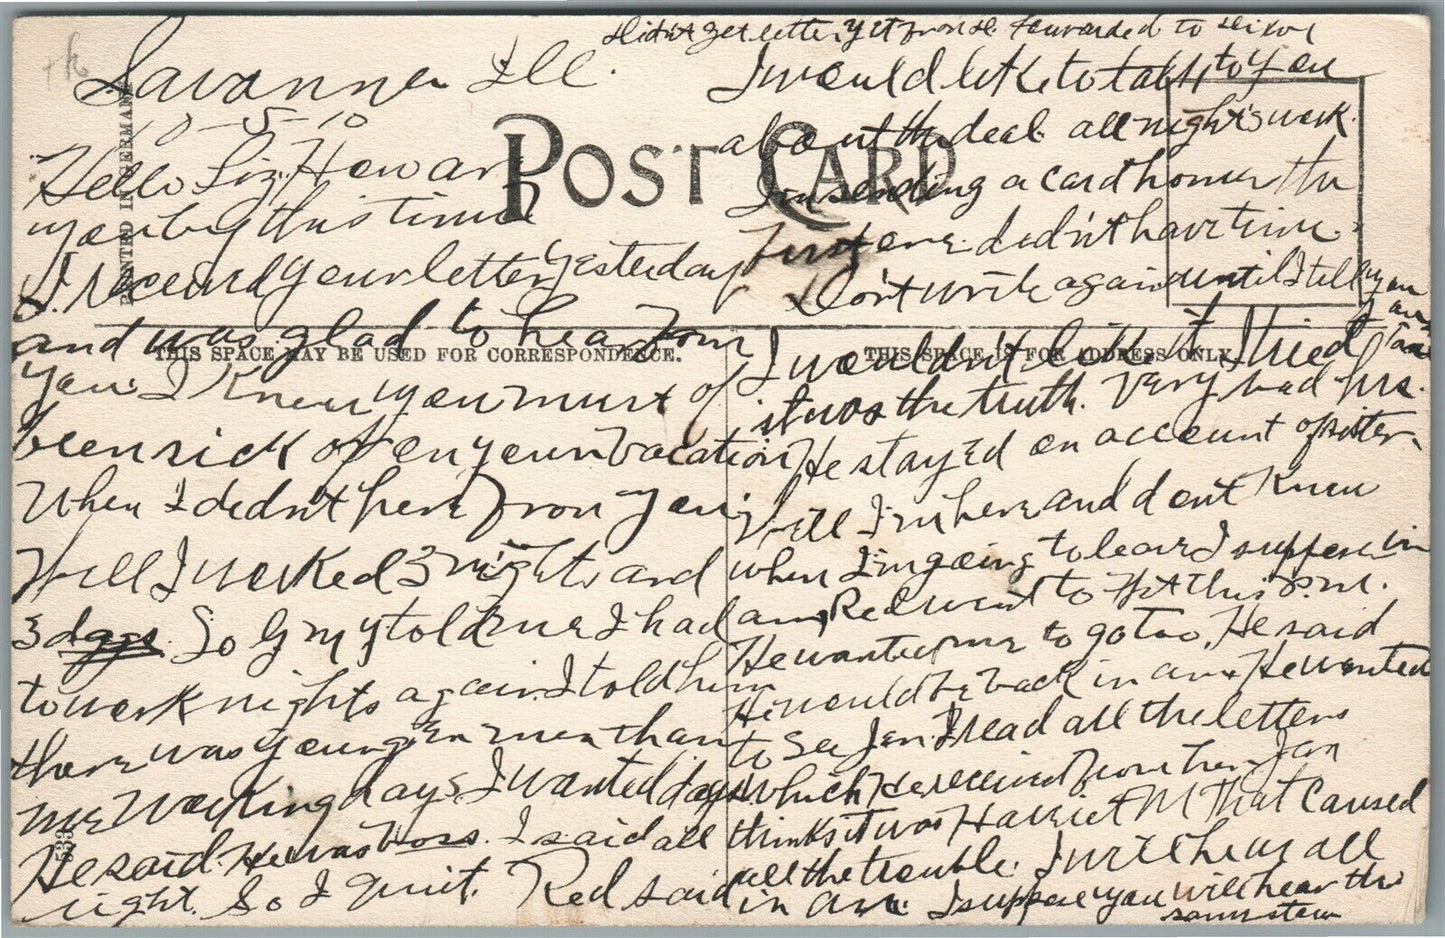 Savanna Ill.
10-5-10
Hello Liz. How are
you by this time
I received your letter yesterday
and was glad to hear from
you. I knew you must of
been sick or on your vacation
When I didn't here from you.
Well I worked 3 nights and
3 days. So Gmy told me I had
to work nights again. I told him
there was younger men than
me working days. I wanted days.
He said. He was Boss. I said all
right. So I quit. Red said
Didn't get letter yet from D. Forwarded to
I would like to talk to you
about the deal. all night's work.
I'm sending a card home the
First one. didn't have time.
Don't write again until I tell you
I wouldn't like it. I tried
it was the truth. Very bad his.
He stayed on account of sister.
Well I'm here and dont know
when I'm going to leave I suppose in
am. Red went to this P.M.
He wanted me to go too. He said
He would be back in am. He wanted
to see Jen. I read all the letters
which He received from her. Jen
thinks it was Harriet M That caused
all the trouble. I will hear all
in am. I suppose you will hear the
same stew
POST CARD
THIS SPACE MAY BE USED FOR CORRESPONDENCE.
THIS SPACE IS FOR ADDRESS ONLY.
PRINTED IN GERMANY